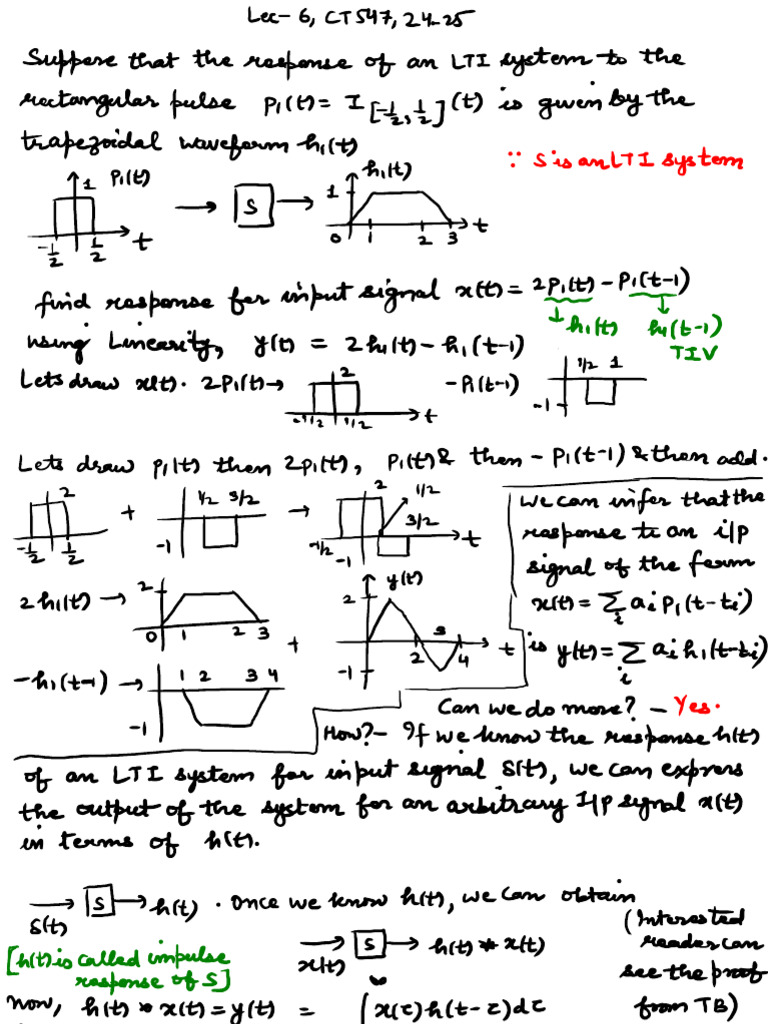 Lec-6, CT547, 24-25
Suppose that the response of an LTI system to the
rectangular pulse p1(t) = I[-1/2, 1/2](t) is given by the
trapezoidal waveform h1(t)
∵ S is an LTI system
1 p1(t) → S → 1 h1(t)
-1/2 1/2 t 0 1 2 3 t
find response for input signal x(t) = 2p1(t) - p1(t-1)
↓ h1(t) ↓ h1(t-1)
TIV
using Linearity, y(t) = 2h1(t) - h1(t-1)
Lets draw x(t). 2p1(t) → 2 -1/2 1/2 t -p1(t-1) 1/2 1 -1
Lets draw p1(t) then 2p1(t), p1(t) & then -p1(t-1) & then add.
2 -1/2 1/2 + 1/2 3/2 -1 → 2 1/2 3/2 -1/2 -1 t
2h1(t) → 2 0 1 2 3
+
-h1(t-1) → 1 2 3 4 -1
y(t) 2 -1 2 3 4 t
We can infer that the
response to an i/p
signal of the form
x(t) = Σi ai p1(t-ti)
is y(t) = Σi ai h1(t-ti)
Can we do more? - Yes.
How? - If we know the response h(t)
of an LTI system for input signal δ(t), we can express
the output of the system for an arbitrary I/p signal x(t)
in terms of h(t).
δ(t) → S → h(t) . Once we know h(t), we can obtain
[h(t) is called impulse
response of S]
x(t) → S → h(t) * x(t)
(Interested
reader can
see the proof
from TB)
Now, h(t) * x(t) = y(t) = ∫x(τ)h(t-τ)dτ